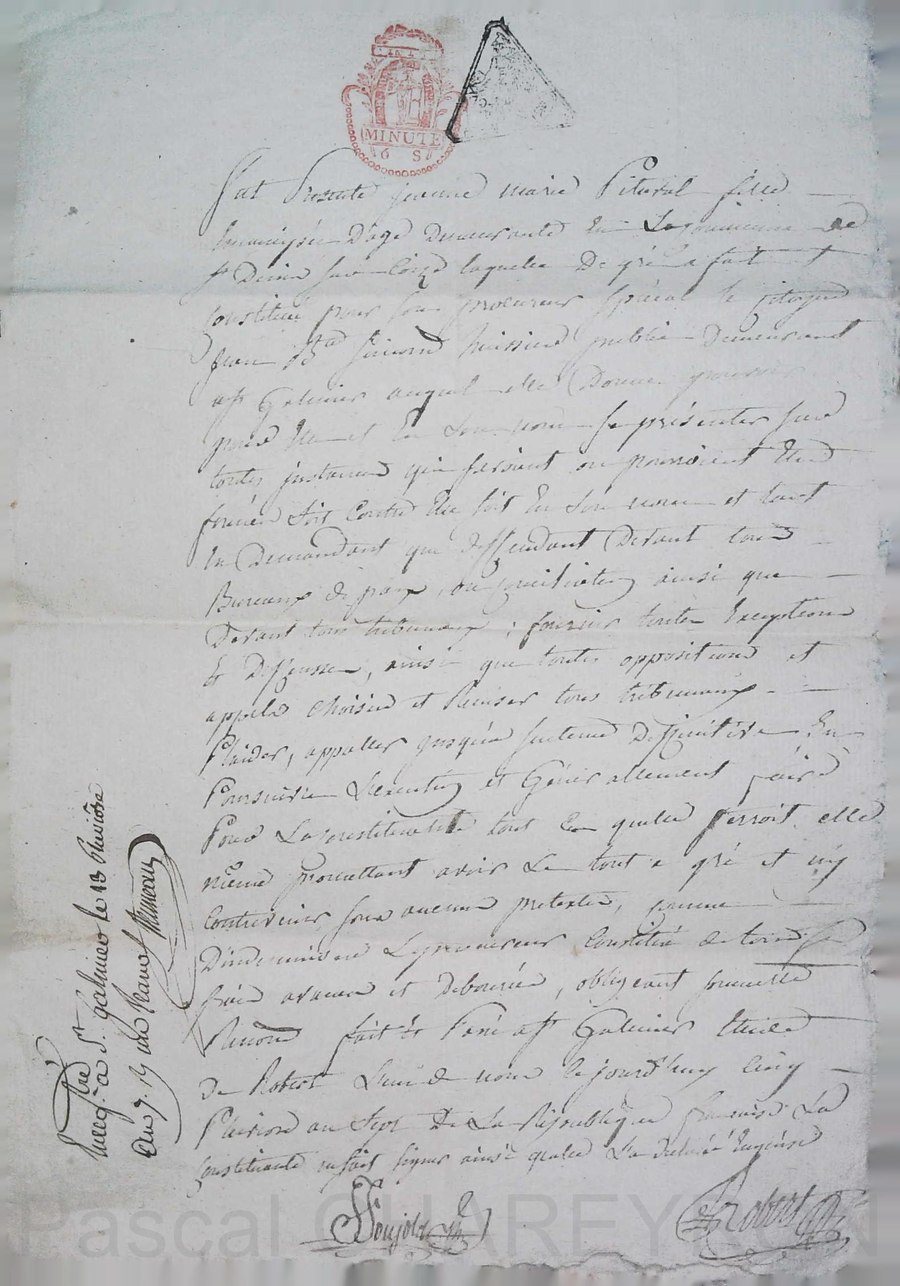 MINUTE
6 S
fut Presente jeanne marie Pitaval fille
Demeurante En La commune de
st Denis sur Coize laquelle De gré a fait et
Constitué pour son procureur spécial le citoyen
jean Bte Simond huissier public Demeurant
a st Galmier auquel elle Donne pouvoir
pour Elle et En Son nom Se présenter sur
toutes instances qui seroient ou pourroient Etre
formées soit Contre Elle soit En Son nom et tant
En Demandant que deffendant Devant tous
Bureaux de paix, ou ainsi que
Devant tous tribunaux ; fournir toutes Exceptions
Et Deffenses, ainsi que toutes oppositions et
appels choisir et Recuser tous tribunaux
Plaider, appeller jusqu'a sentence Deffinitive En
Poursuivre L'execution et Générallement faire
Pour La Constituante tout Ce quelle feroit elle
même promettant avoir Le tout a gré et n'y
Contrevenir, sous aucun pretexte, comme
D'indemniser Le procureur Constitué de tous
frais avances et Deboursés, obligeant
fait Et Passé a st Galmier Etude
de Robert L'un de nous Cejourd'huy Cinq
Pluviose an Sept de La République française La
Constituante n'a sait signer ainsi quelle L'a Declaré Enquise
Robert
Enregtré a St. galmier le 13 Pluviose
an 7.
Pascal CHAREYRON